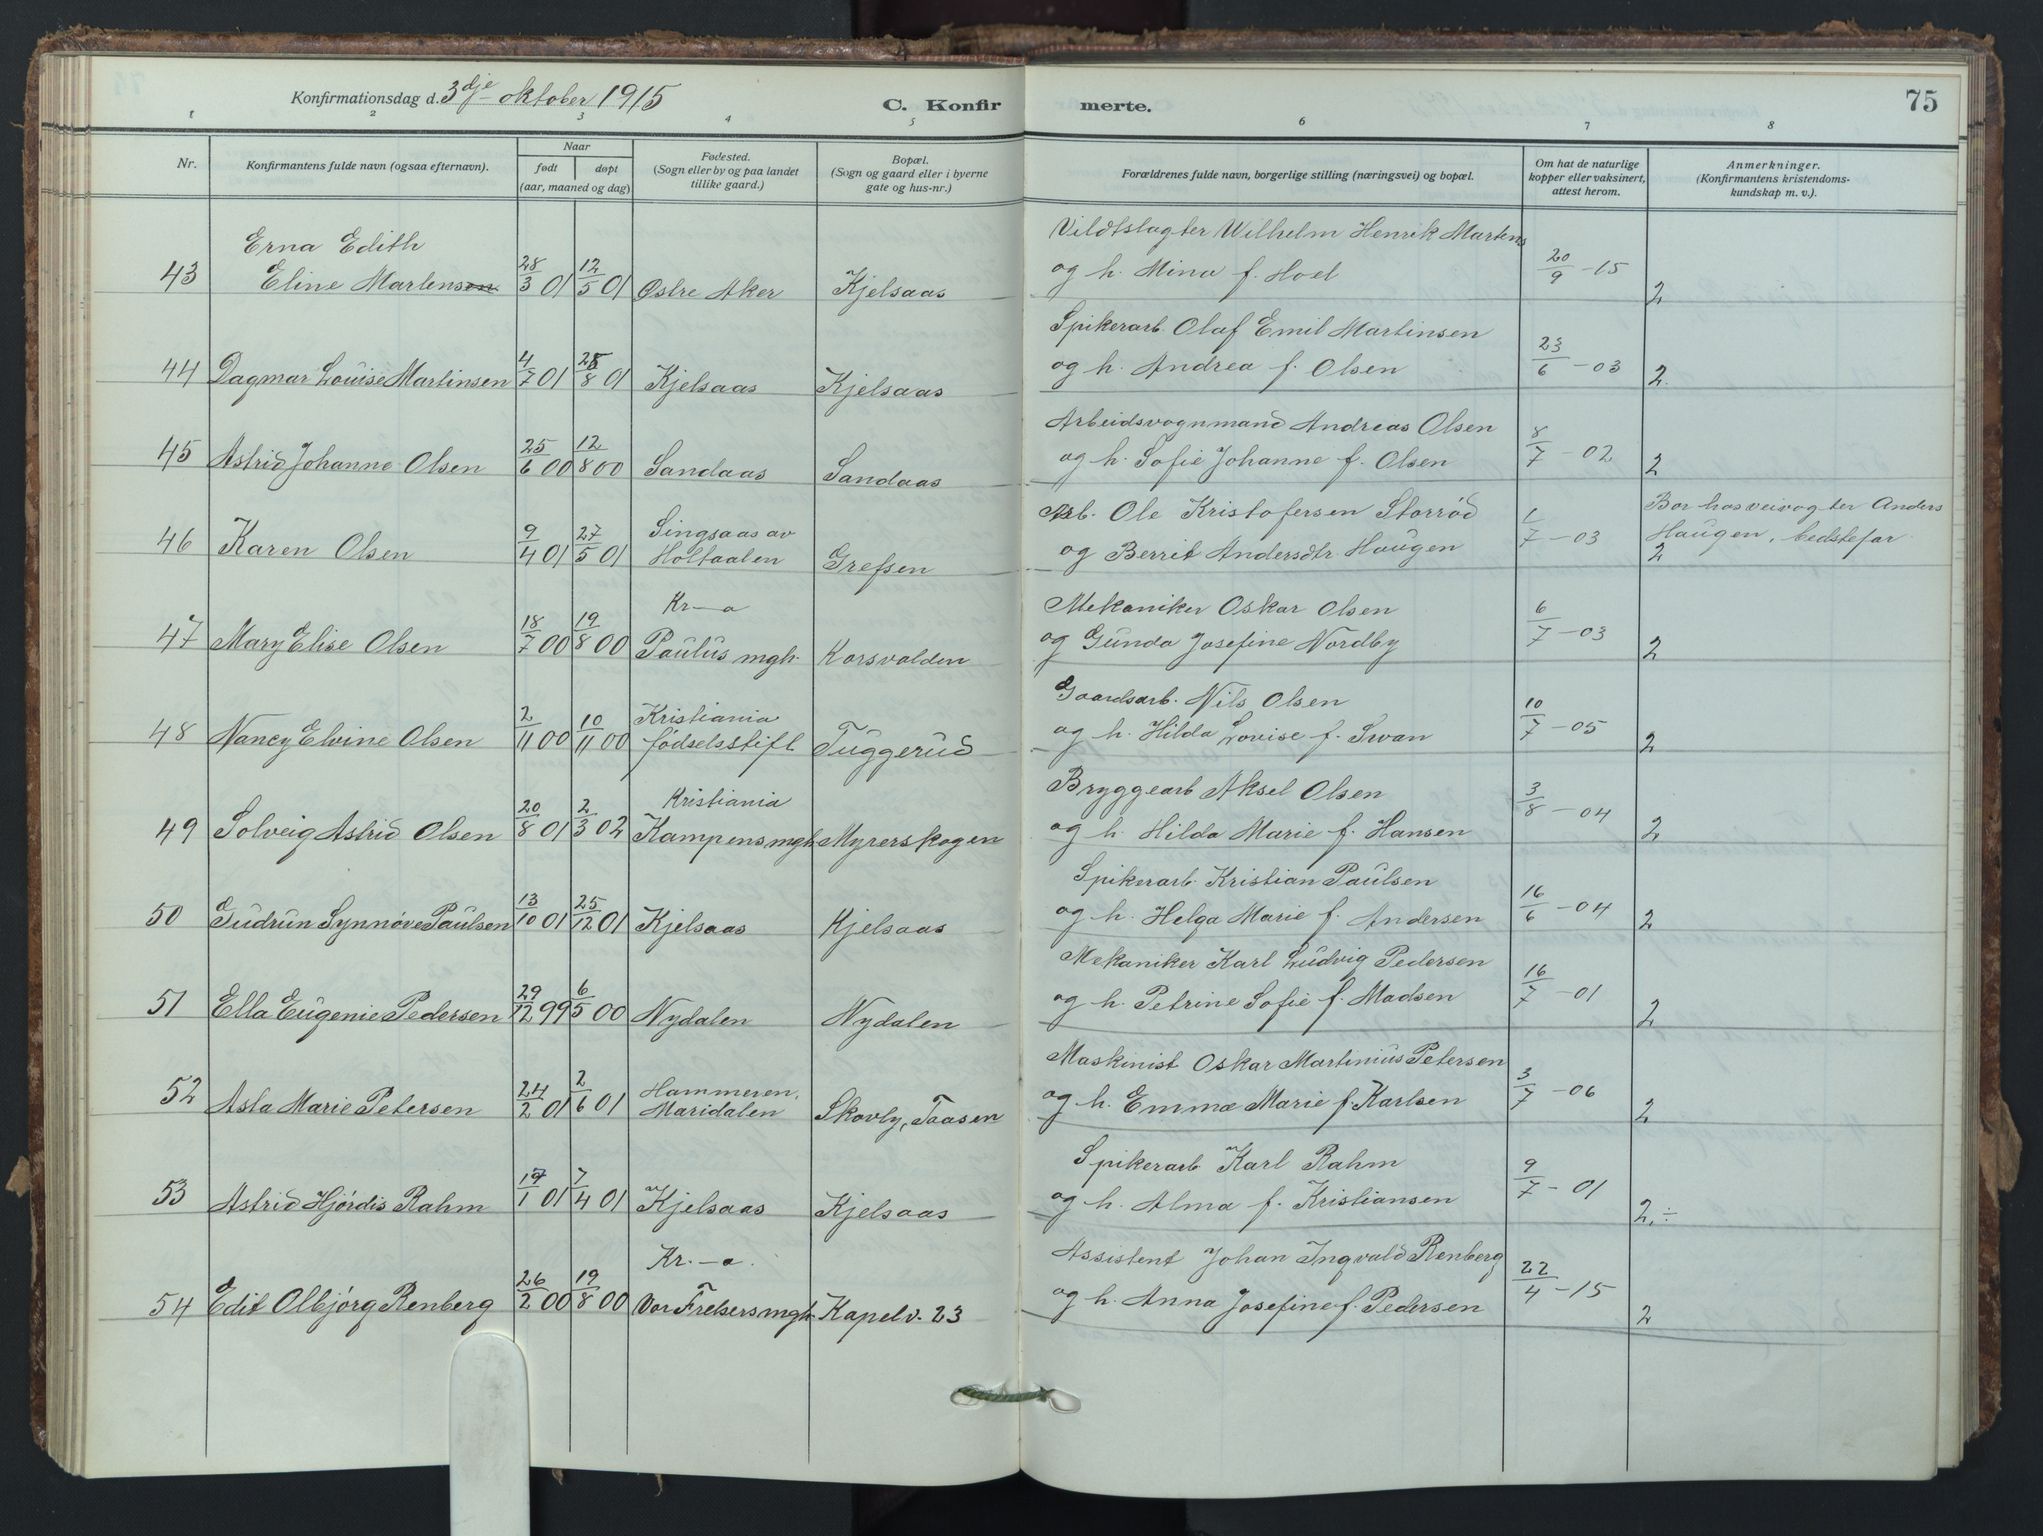 Konfirmationsdag d. 3dje oktober 1915
C. Konfir merte.
75
1 2 3 4 5 6 7 8
Nr.
Konfirmantens fulde navn (ogsaa efternavn).
Naar
født døpt
(aar, maaned og dag)
Fødested.
(Sogn eller by og paa landet
tillike gaard.)
Bopæl.
(Sogn og gaard eller i byerne
gate og hus-nr.)
Forældrenes fulde navn, borgerlige stilling (næringsvei) og bopæl.
Om hat de naturlige
kopper eller vaksinert,
attest herom.
Anmerkninger.
(Konfirmantens kristendoms-
kundskap m. v.).
Erna Edith Vildtslagter Wilhelm Henrik Martens
43 Eline Martensen 28/3 01 12/5 01 Østre Aker Kjelsaas og h. Mina f. Hoel 20/9 -15 2
Spikerarb. Olaf Emil Martinsen
44 Dagmar Louise Martinsen 4/7 01 25/8 01 Kjelsaas Kjelsaas og h. Andrea f. Olsen 23/6 -03 2.
Arbeidsvognmand Andreas Olsen
45 Astrid Johanne Olsen 25/6 00 12/8 00 Sandaas Sandaas og h. Sofie Johanne f. Olsen 8/7 -02 2
Singsaas av Arb. Ole Kristofersen Storrød Bor hos veivogter Anders
46 Karen Olsen 9/4 01 27/5 01 Holtaalen Grefsen og Berrit Andersdtr. Haugen 1/7 -03 Haugen, bedstefar
2
Kr-a Mekaniker Oskar Olsen
47 Mary Elise Olsen 18/7 00 19/8 00 Paulus mgh. Korsvolden og Gunda Josefine Nordby 6/7 -03 2
Kristiania Gaardsarb. Nils Olsen
48 Nancy Elvine Olsen 2/11 00 10/11 00 fødselsstift Tuggerud og h. Hilda Lovise f. Svan 10/7 -05 2
Kristiania Bryggearb Aksel Olsen
49 Solveig Astrid Olsen 20/8 01 2/3 02 Kampens mgh. Myrerskogen og h. Hilda Marie f. Hansen 3/8 -04 2
Spikerarb. Kristian Paulsen
50 Gudrun Synnøve Paulsen 13/10 01 25/12 01 Kjelsaas Kjelsaas og h. Helga Marie f. Andersen 16/6 -04 2
Mekaniker Karl Ludvig Pedersen
51 Ella Eugenie Pedersen 29/12 99 6/5 00 Nydalen Nydalen og h. Petrine Sofie f. Madsen 16/7 -01 2
Hammeren, Maskinist Oskar Martinius Petersen
52 Asta Marie Petersen 24/2 01 2/6 01 Maridalen Skovly, Taasen og h. Emma Marie f. Karlsen 3/7 -06 2
Spikerarb. Karl Rahm
53 Astrid Hjördis Rahm 17/1 01 7/4 01 Kjelsaas Kjelsaas og h. Alma f. Kristiansen 9/7 -01 2,÷
Kr.-a. Assistent Johan Ingvald Renberg
54 Edit Olbjörg Renberg 26/2 00 19/8 00 Vor Frelsers mgh. Kapelv. 23 og h. Anna Josefine f. Pedersen 22/4 -15 2